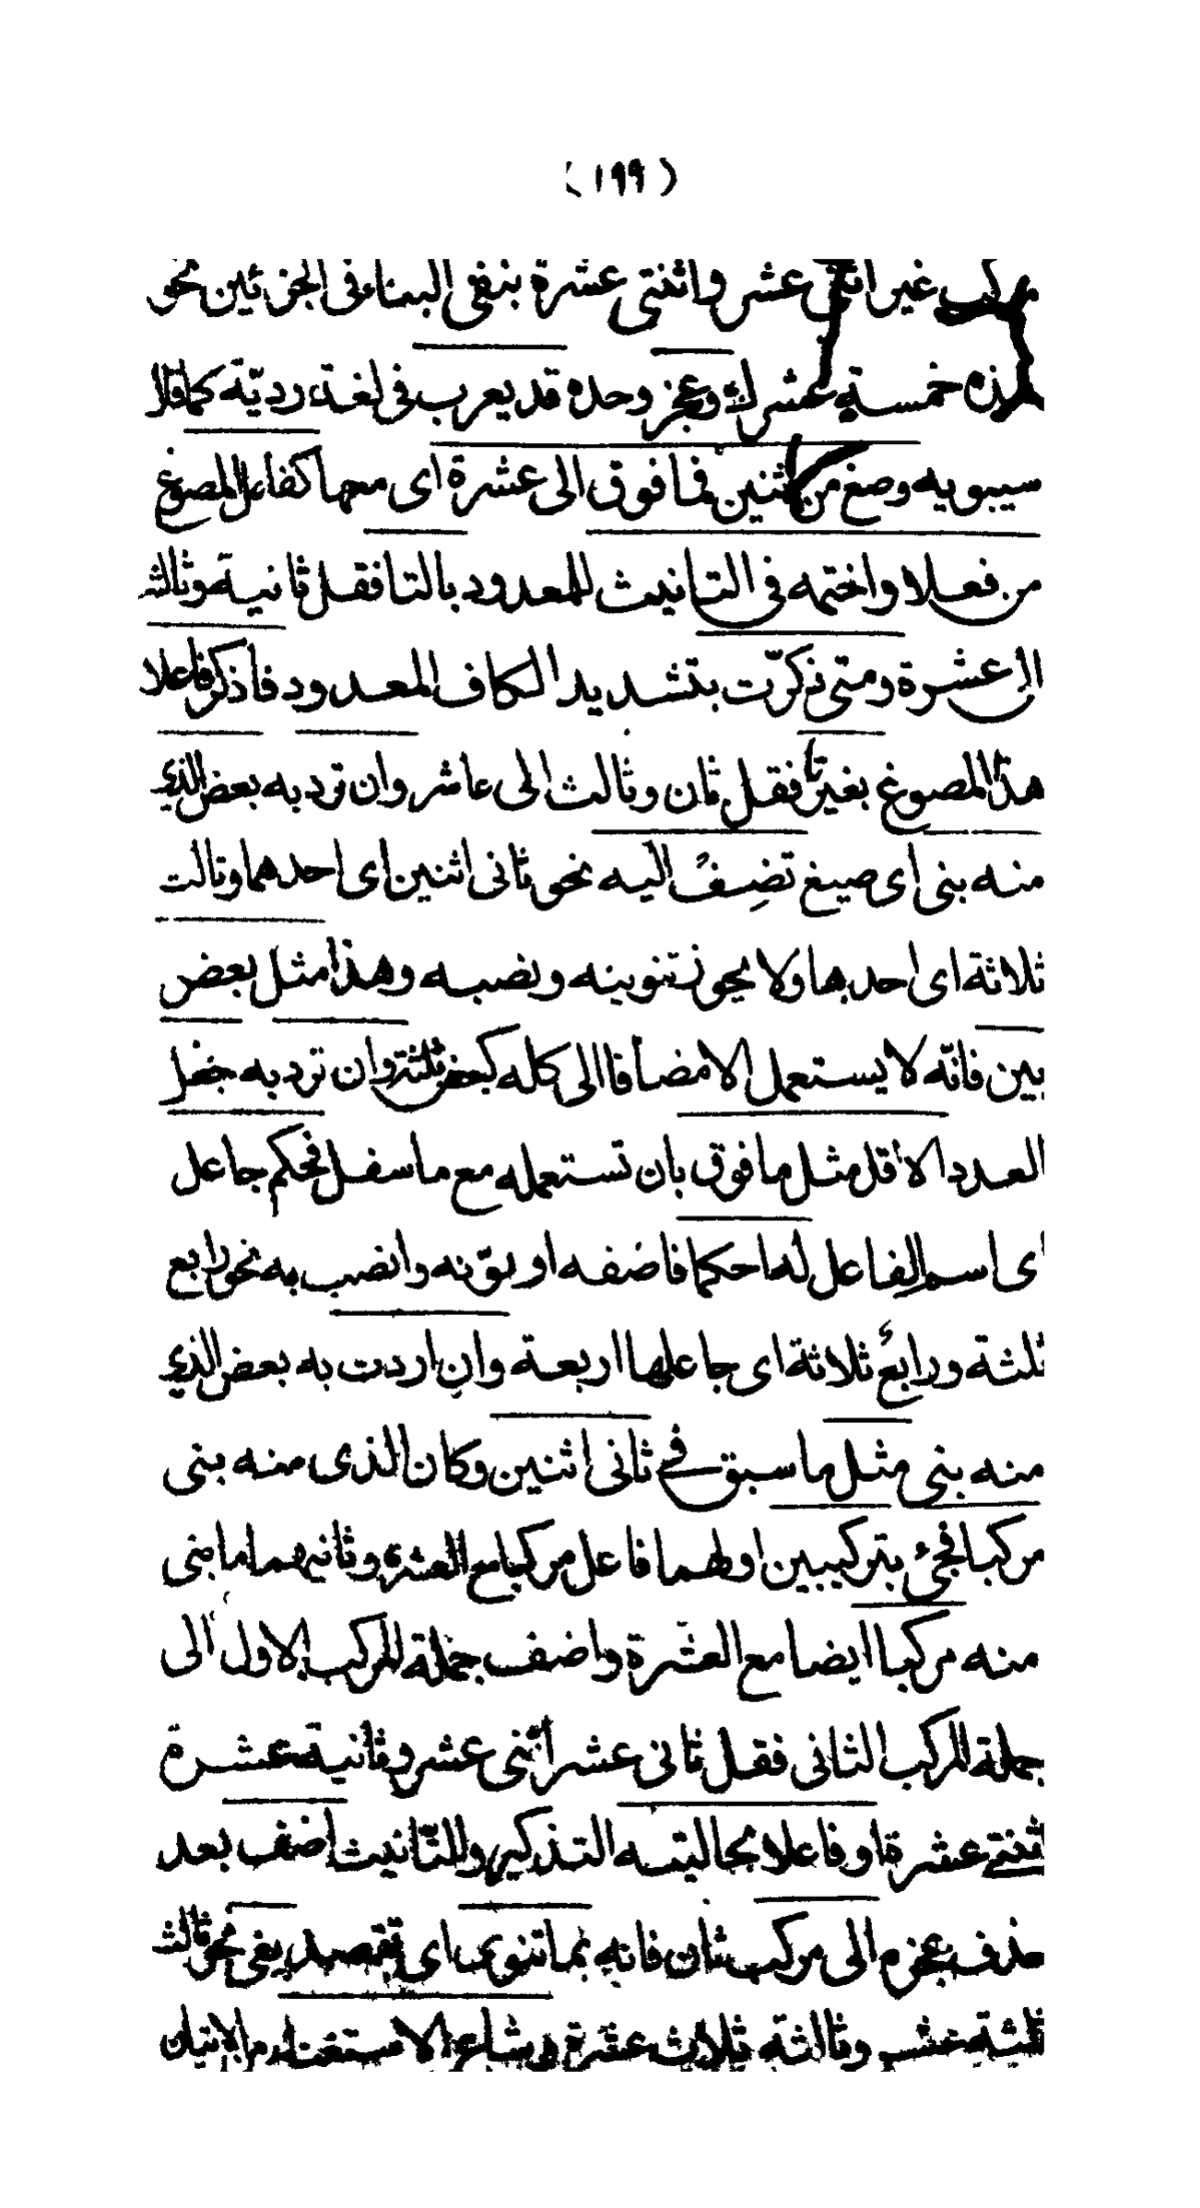 (١٩٩)
مركب غير اثنى عشر واثنتى عشرة بنفى البناء فى الجزئين نحو
هذه خمسة عشرك وعجز وحده قد يعرب فى لغة رديّة كما قال
سيبويه وصغ من اثنين فما فوق الى عشرة اى معها كفاعل المصوغ
من فعلا واختمه فى التانيث للمعدود بالتا فقل ثانية وثالثة
الى عشرة ومتى ذكرّت بتشديد الكاف المعدود فاذكر فاعلا
هذا المصوغ بغير تا فقل ثان وثالث الى عاشر وان ترد به بعض الذى
منه بنى اى صيغ تضف اليه نحو ثانى اثنين اى احدهما وثالث
ثلاثة اى احدها ولا يجوز تنوينه ونصبه وهذا مثل بعض
بين فانّه لا يستعمل الا مضافا الى كله كبعض ثلثة وان ترد به جعل
العدد الاقل مثل ما فوق بان تستعمله مع ما سفل فحكم جاعل
اى اسم الفاعل له احكما فاضفه او نوّنه وانصب به نحو رابع
ثلثة ورابعٌ ثلاثة اى جاعلها اربعة وان اردت به بعض الذى
منه بنى مثل ما سبق فى ثانى اثنين وكان الذى منه بنى
مركبا فجئ بتركيبين اولهما فاعل مركبا مع العشرة وثانيهما ما بنى
منه مركبا ايضا مع العشرة واضف جملة المركب الاول الى
جملة المركب الثانى فقل ثانى عشر اثنى عشر وثانية عشرة
اثنتى عشرة او فاعلا بحالتيه التذكير والتّانيث اضف بعد
حذف عجزه الى مركب ثان فانه بما تنوى اى تقصد يفى نحو ثالث
ثلثة عشر وثالثة ثلاث عشرة وشاع الاستغناء عن الاتيان